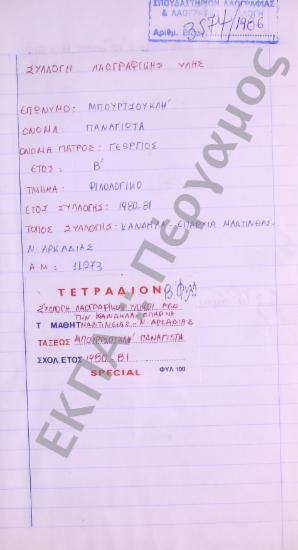 ΣΠΟΥΔΑΣΤΗΡΙΟΝ ΛΑΟΓΡΑΦΙΑΣ
Αριθμ. 3574/1986
ΣΥΛΛΟΓΗ ΛΑΟΓΡΑΦΙΚΗΣ ΥΛΗΣ
ΕΠΩΝΥΜΟ: ΜΠΟΥΡΤΣΟΥΚΛΗ
ΟΝΟΜΑ: ΠΑΝΑΓΙΩΤΑ
ΟΝΟΜΑ ΠΑΤΡΟΣ: ΓΕΩΡΓΙΟΣ
ΕΤΟΣ: Β'
ΤΜΗΜΑ: ΦΙΛΟΛΟΓΙΚΟ
ΕΤΟΣ ΣΥΛΛΟΓΗΣ: 1980-81
ΤΟΠΟΣ ΣΥΛΛΟΓΗΣ: ΚΑΝΔΗΛΑ - ΕΠΑΡΧΙΑ ΜΑΝΤΙΝΕΙΑΣ
Ν. ΑΡΚΑΔΙΑΣ
Α.Μ: 11273
ΤΕΤΡΑΔΙΟΝ
ΣΥΛΛΟΓΗ ΛΑΟΓΡΑΦΙΚΟΥ ΥΛΙΚΟΥ ΑΠΟ
ΤΗΝ ΚΑΝΔΗΛΑ ΕΠΑΡΧΙΑ
Τ ΜΑΘΗΤ ΜΑΝΤΙΝΕΙΑΣ - Ν. ΑΡΚΑΔΙΑΣ
ΤΑΞΕΩΣ ΜΠΟΥΡΤΣΟΥΚΛΗ ΠΑΝΑΓΙΩΤΑ
ΣΧΟΛ. ΕΤΟΣ 1980-81
SPECIAL ΦΥΛ 100
ΕΚΠΑ, Πέργαμος